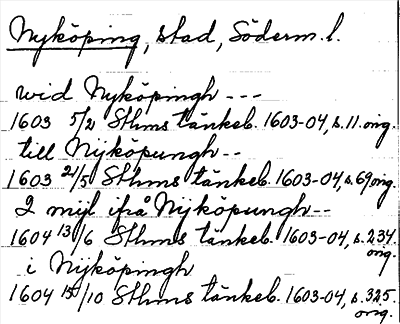 Nyköping, stad, Söderm. l.
wid Nyköpingh ---
1603 5/2 Sthms tänkeb. 1603-04, s. 11. orig.
till Nijköpungh --
1603 21/5 Sthms tänkeb. 1603-04, s. 69 orig.
2 mijl ifrå Nijköpungh --
1604 13/6 Sthms tänkeb. 1603-04, s. 234. orig.
i Nyköpingh
1604 15/10 Sthms tänkeb. 1603-04, s. 325. orig.